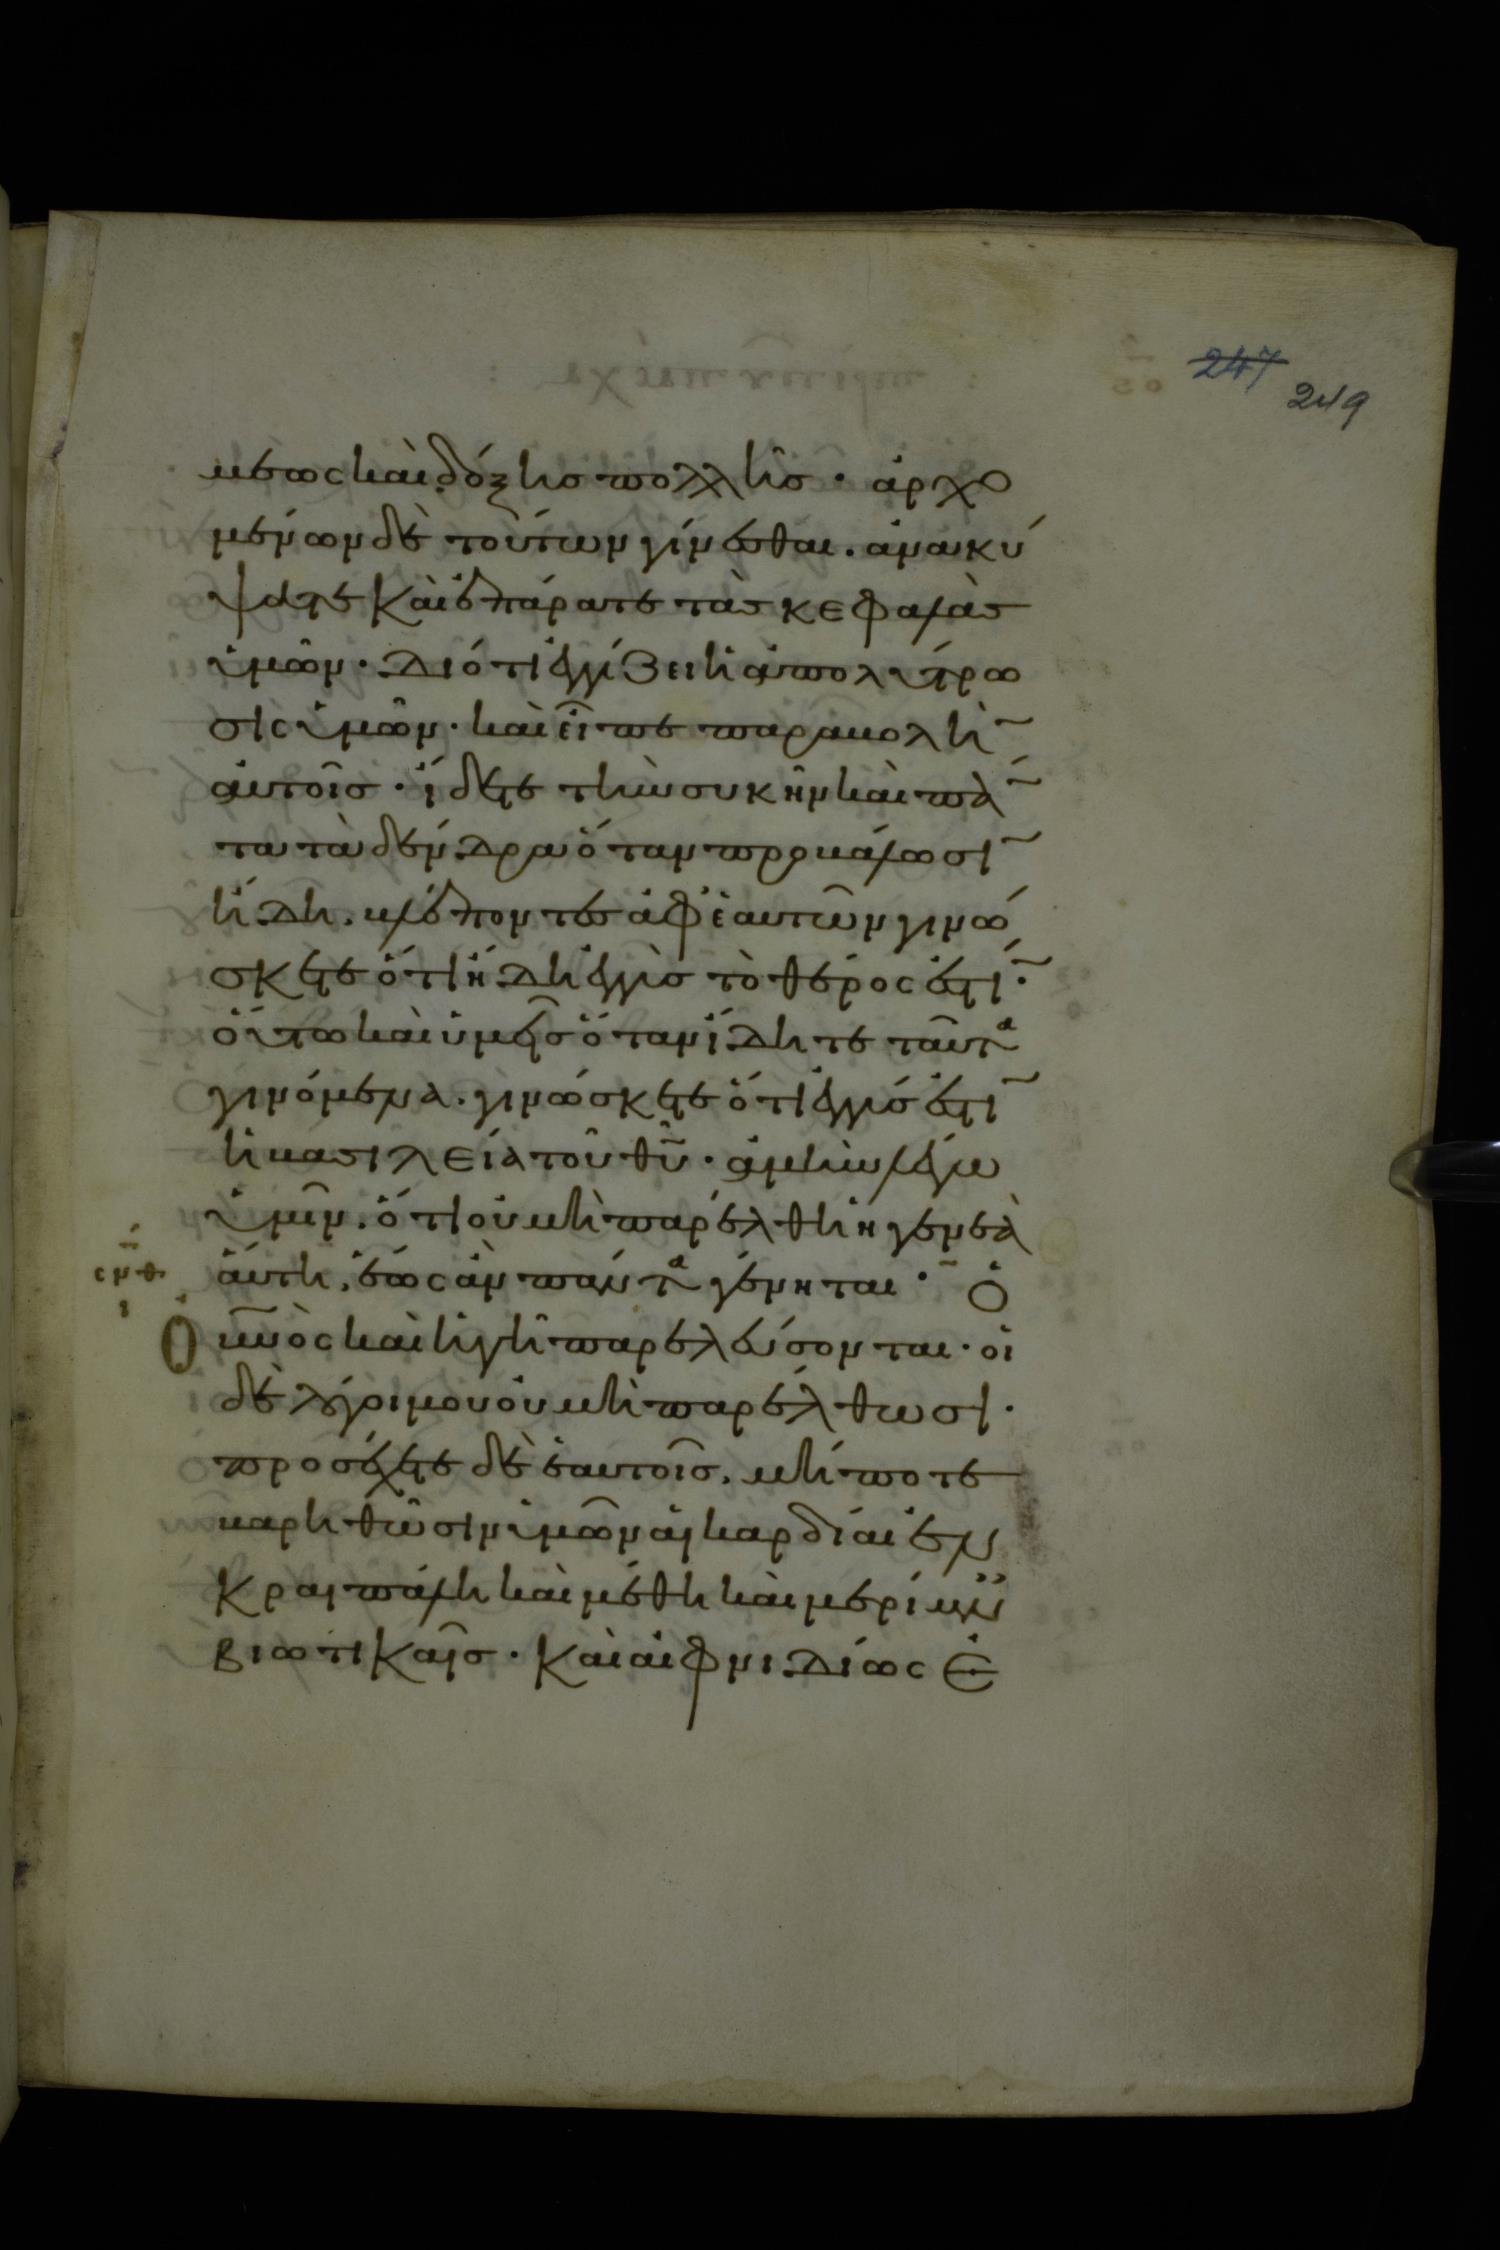 247
249
μεως καὶ δόξης πολλῆς · ἀρχο
μένων δὲ τούτων γίνεσθαι . ἀνακύ
ψατε καὶ ἐπάρατε τὰς κεφαλὰς
ὑμῶν · διότι ἐγγίζει ἡ ἀπολύτρω
σις ὑμῶν · καὶ εἶπε παραβολὴ ̅
αὐτοῖς · ἴδετε τὴν συκῆν καὶ πά ̅
τα τὰ δένδρα ὅταν προβάλωσι ̅
ἤδη . βλέποντες ἀφ' ἑαυτῶν γινώ
σκετε ὅτι ἤδη ἐγγὺς τὸ θέρος ἐστί ̅ ·
οὕτω καὶ ὑμεῖς ὅταν ἴδητε ταῦτα
γινόμενα . γινώσκετε ὅτι ἐγγύς ἐστι ̅
ἡ βασιλεία τοῦ θ̅υ̅ · ἀμὴν λέγω
ὑμῖν . ὅτι οὐ μὴ παρέλθη ἡ γενεὰ
αὕτη , ἕως ἂν πάντα γένηται · Ὁ
σμθ
ι
ὁ ο̅υ̅νὸς καὶ ἡ γῆ παρελεύσονται · οἱ
δὲ λόγοι μου οὐ μὴ παρέλθωσι ·
προσέχετε δὲ ἑαυτοῖς . μήποτε
βαρηθῶσιν ὑμῶν αἱ καρδίαι ἐν
κραιπάλη καὶ μέθη καὶ μερίμναις
βιωτικαῖς · καὶ αἰφνιδίως ἐ